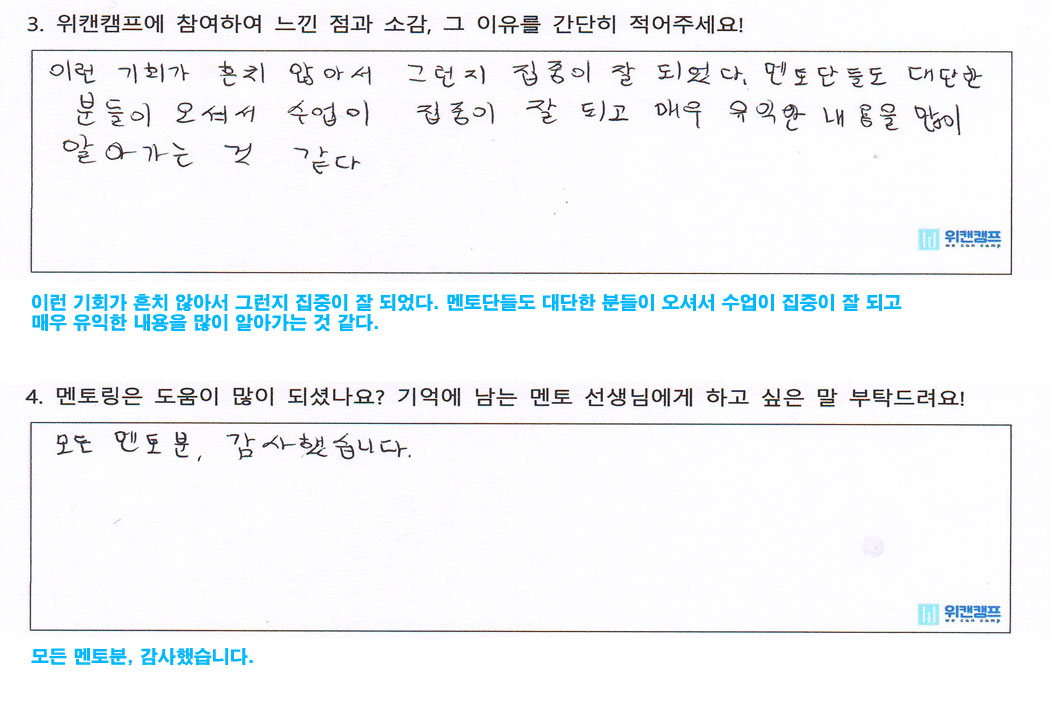 3. 위캔캠프에 참여하여 느낀 점과 소감, 그 이유를 간단히 적어주세요!
이런 기회가 흔치 않아서 그런지 집중이 잘 되었다. 멘토단들도 대단한
분들이 오셔서 수업이 집중이 잘 되고 매우 유익한 내용을 많이
알아가는 것 같다
위캔캠프
we can camp
이런 기회가 흔치 않아서 그런지 집중이 잘 되었다. 멘토단들도 대단한 분들이 오셔서 수업이 집중이 잘 되고
매우 유익한 내용을 많이 알아가는 것 같다.
4. 멘토링은 도움이 많이 되셨나요? 기억에 남는 멘토 선생님에게 하고 싶은 말 부탁드려요!
모든 멘토분, 감사했습니다.
위캔캠프
we can camp
모든 멘토분, 감사했습니다.